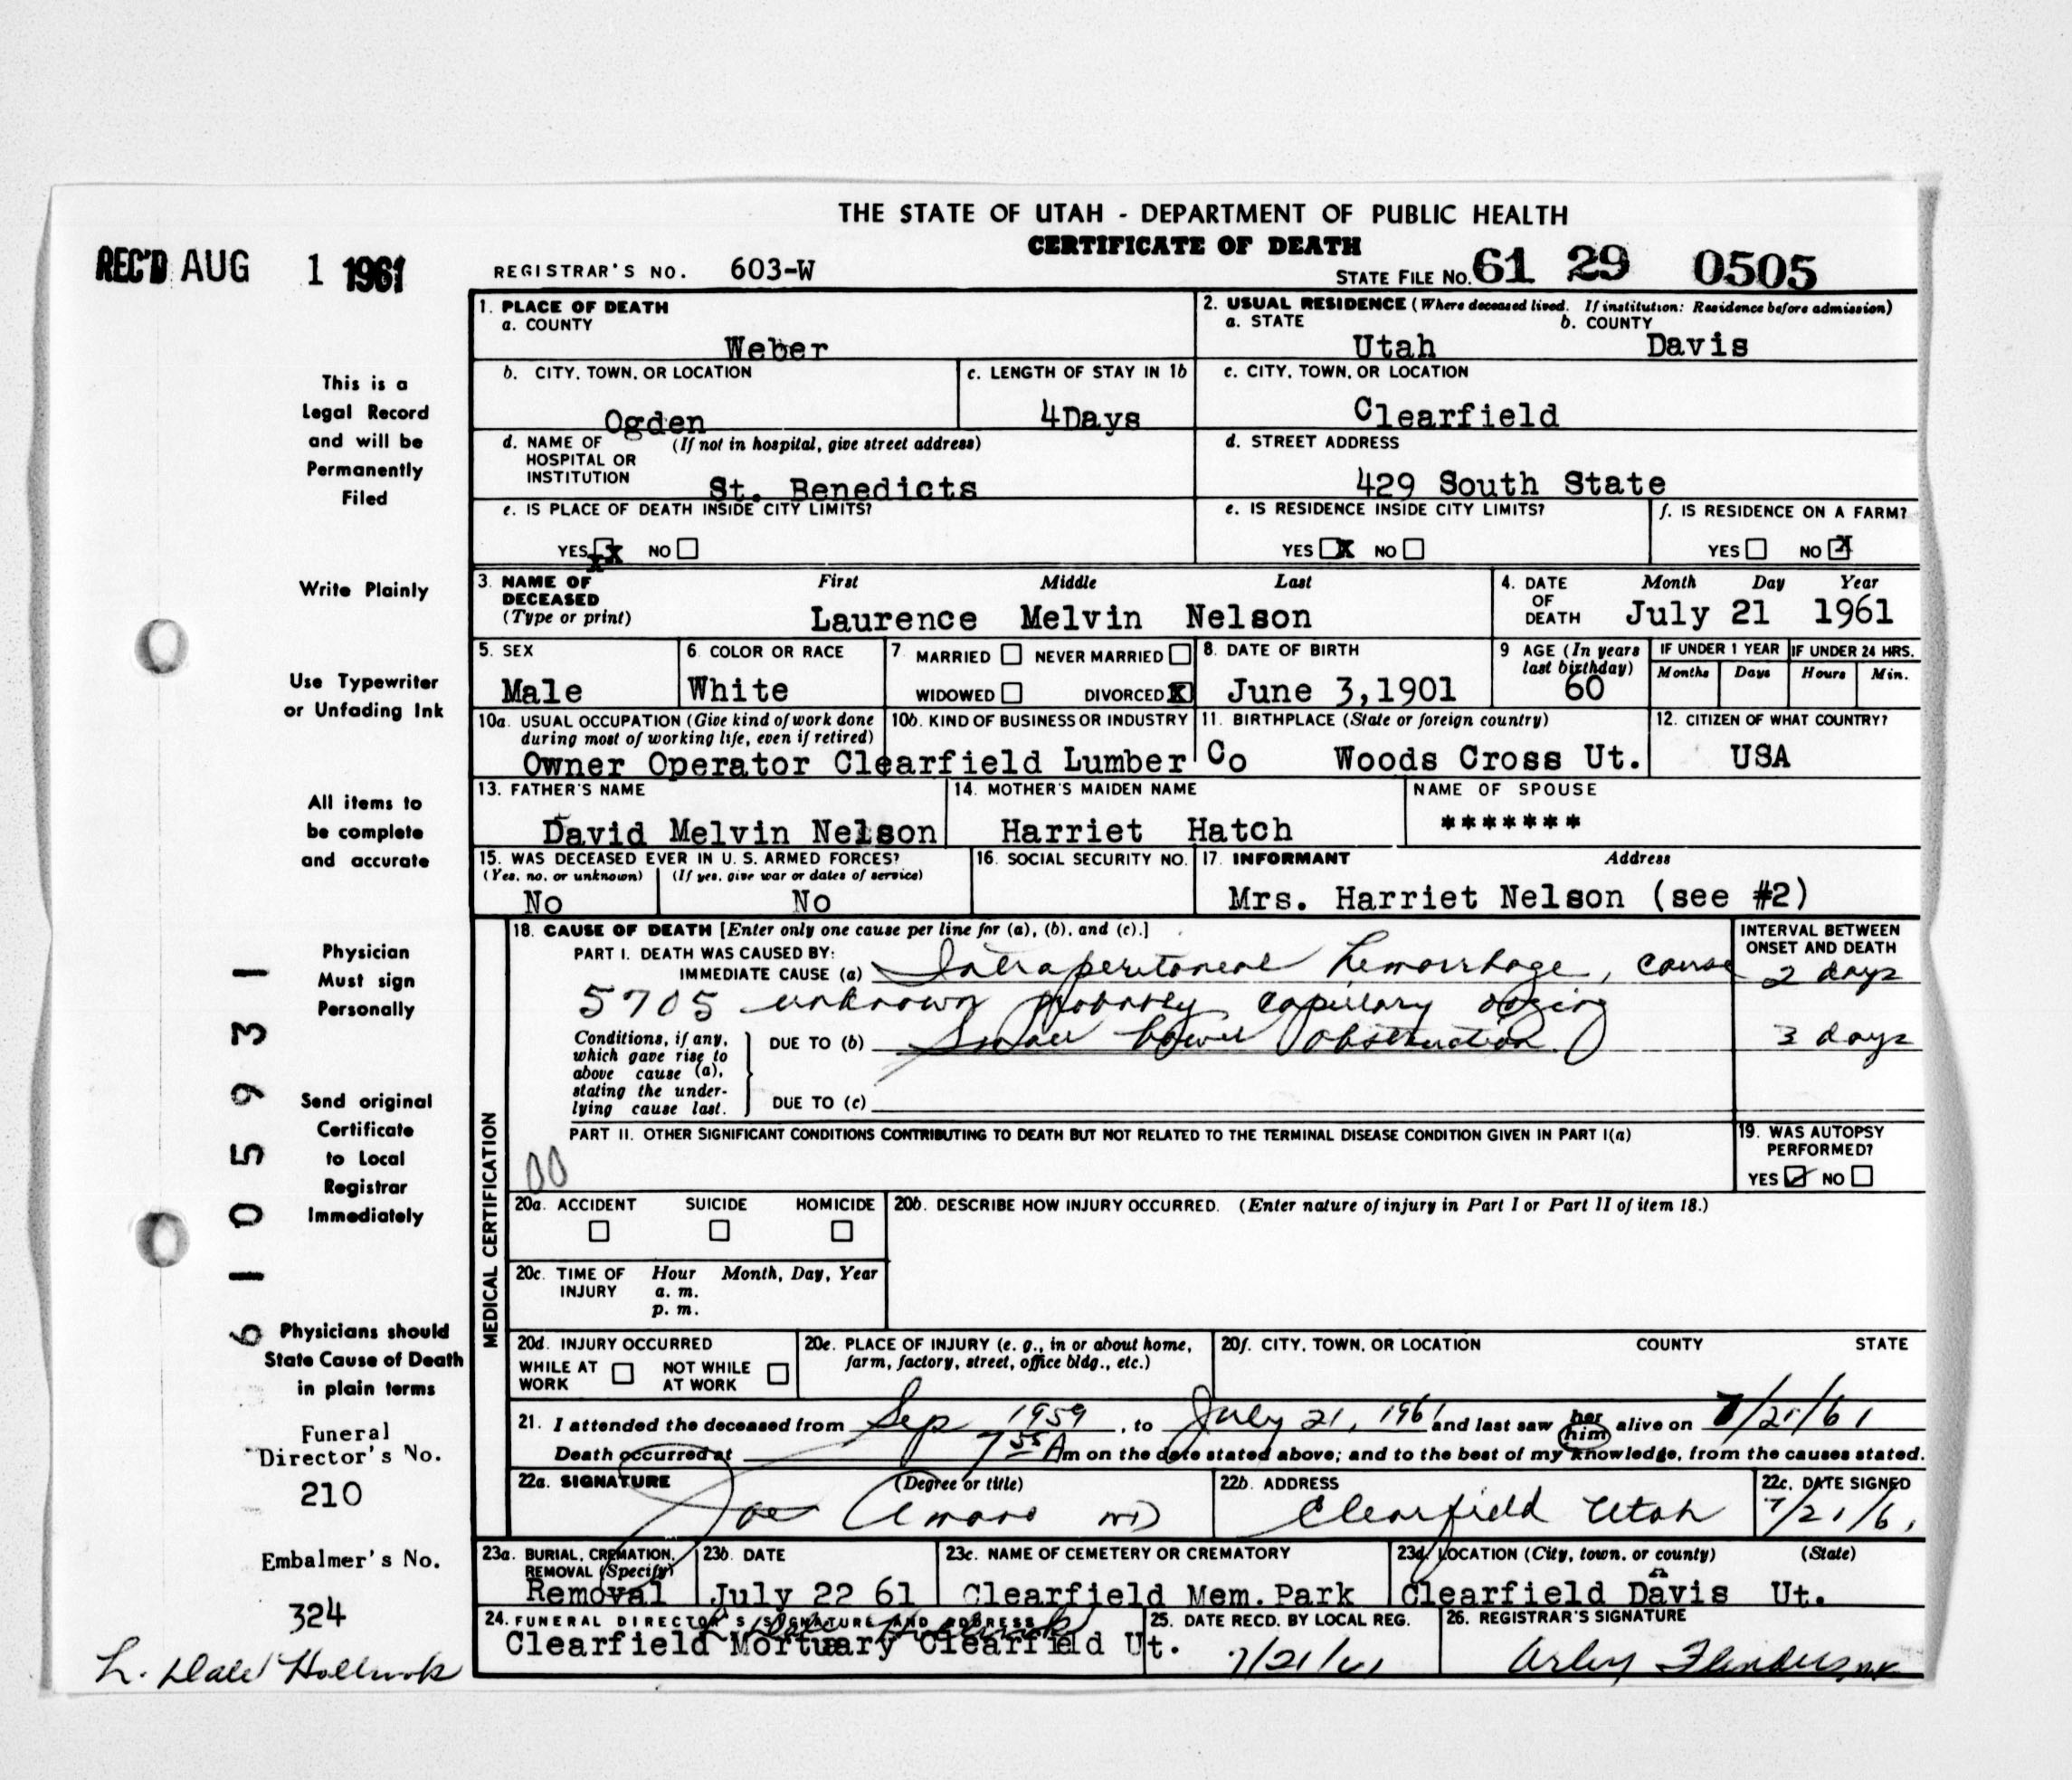 THE STATE OF UTAH - DEPARTMENT OF PUBLIC HEALTH
CERTIFICATE OF DEATH
REC'D AUG 1 1961
REGISTRAR'S NO. 603-W
STATE FILE NO. 61 29 0505
1. PLACE OF DEATH
a. COUNTY
Weber
2. USUAL RESIDENCE (Where deceased lived. If institution: Residence before admission)
a. STATE b. COUNTY
Utah Davis
b. CITY, TOWN, OR LOCATION
Ogden
c. LENGTH OF STAY IN 1b
4Days
c. CITY, TOWN, OR LOCATION
Clearfield
d. NAME OF (If not in hospital, give street address)
HOSPITAL OR
INSTITUTION
St. Benedicts
d. STREET ADDRESS
429 South State
e. IS PLACE OF DEATH INSIDE CITY LIMITS?
YES X NO
e. IS RESIDENCE INSIDE CITY LIMITS?
YES X NO
f. IS RESIDENCE ON A FARM?
YES NO X
3. NAME OF
DECEASED
(Type or print)
First Middle Last
Laurence Melvin Nelson
4. DATE
OF
DEATH
Month Day Year
July 21 1961
5. SEX
Male
6. COLOR OR RACE
White
7. MARRIED NEVER MARRIED
WIDOWED DIVORCED X
8. DATE OF BIRTH
June 3,1901
9 AGE (In years
last birthday)
60
IF UNDER 1 YEAR
Months Days
IF UNDER 24 HRS.
Hours Min.
10a. USUAL OCCUPATION (Give kind of work done
during most of working life, even if retired)
10b. KIND OF BUSINESS OR INDUSTRY
Owner Operator Clearfield Lumber Co
11. BIRTHPLACE (State or foreign country)
Woods Cross Ut.
12. CITIZEN OF WHAT COUNTRY?
USA
13. FATHER'S NAME
David Melvin Nelson
14. MOTHER'S MAIDEN NAME
Harriet Hatch
NAME OF SPOUSE
*******
15. WAS DECEASED EVER IN U. S. ARMED FORCES?
(Yes, no, or unknown) (If yes, give war or dates of service)
No No
16. SOCIAL SECURITY NO.
17. INFORMANT Address
Mrs. Harriet Nelson (see #2)
MEDICAL CERTIFICATION
18. CAUSE OF DEATH [Enter only one cause per line for (a), (b), and (c).]
INTERVAL BETWEEN
ONSET AND DEATH
PART I. DEATH WAS CAUSED BY:
IMMEDIATE CAUSE (a) Intraperitoneal hemorrhage, cause 2 days
5705 unknown probably capillary oozing
Conditions, if any,
which gave rise to
above cause (a),
stating the under-
lying cause last.
DUE TO (b) Small bowel obstruction 3 days
DUE TO (c)
PART II. OTHER SIGNIFICANT CONDITIONS CONTRIBUTING TO DEATH BUT NOT RELATED TO THE TERMINAL DISEASE CONDITION GIVEN IN PART I(a)
00
19. WAS AUTOPSY
PERFORMED?
YES NO
20a. ACCIDENT SUICIDE HOMICIDE
20b. DESCRIBE HOW INJURY OCCURRED. (Enter nature of injury in Part I or Part II of item 18.)
20c. TIME OF
INJURY
Hour Month, Day, Year
a. m.
p. m.
20d. INJURY OCCURRED
WHILE AT
WORK
NOT WHILE
AT WORK
20e. PLACE OF INJURY (e. g., in or about home,
farm, factory, street, office bldg., etc.)
20f. CITY, TOWN, OR LOCATION COUNTY STATE
21. I attended the deceased from Sep 1959, to July 21, 1961 and last saw her him alive on 7/21/61
Death occurred at 7 55 Am on the date stated above; and to the best of my knowledge, from the causes stated.
22a. SIGNATURE (Degree or title)
Joe Amano MD
22b. ADDRESS
Clearfield Utah
22c. DATE SIGNED
7/21/61
23a. BURIAL, CREMATION,
REMOVAL (Specify)
Removal
23b. DATE
July 22 61
23c. NAME OF CEMETERY OR CREMATORY
Clearfield Mem. Park
23d. LOCATION (City, town, or county) (State)
Clearfield Davis Ut.
24. FUNERAL DIRECTOR'S SIGNATURE AND ADDRESS
L. Dale Holbrook
Clearfield Mortuary Clearfield Ut.
25. DATE RECD. BY LOCAL REG.
7/21/61
26. REGISTRAR'S SIGNATURE
Arley Flinders
This is a
Legal Record
and will be
Permanently
Filed
Write Plainly
Use Typewriter
or Unfading Ink
All items to
be complete
and accurate
Physician
Must sign
Personally
Send original
Certificate
to Local
Registrar
Immediately
Physicians should
State Cause of Death
in plain terms
6105931
Funeral
Director's No.
210
Embalmer's No.
324
L. Dale Holbrook